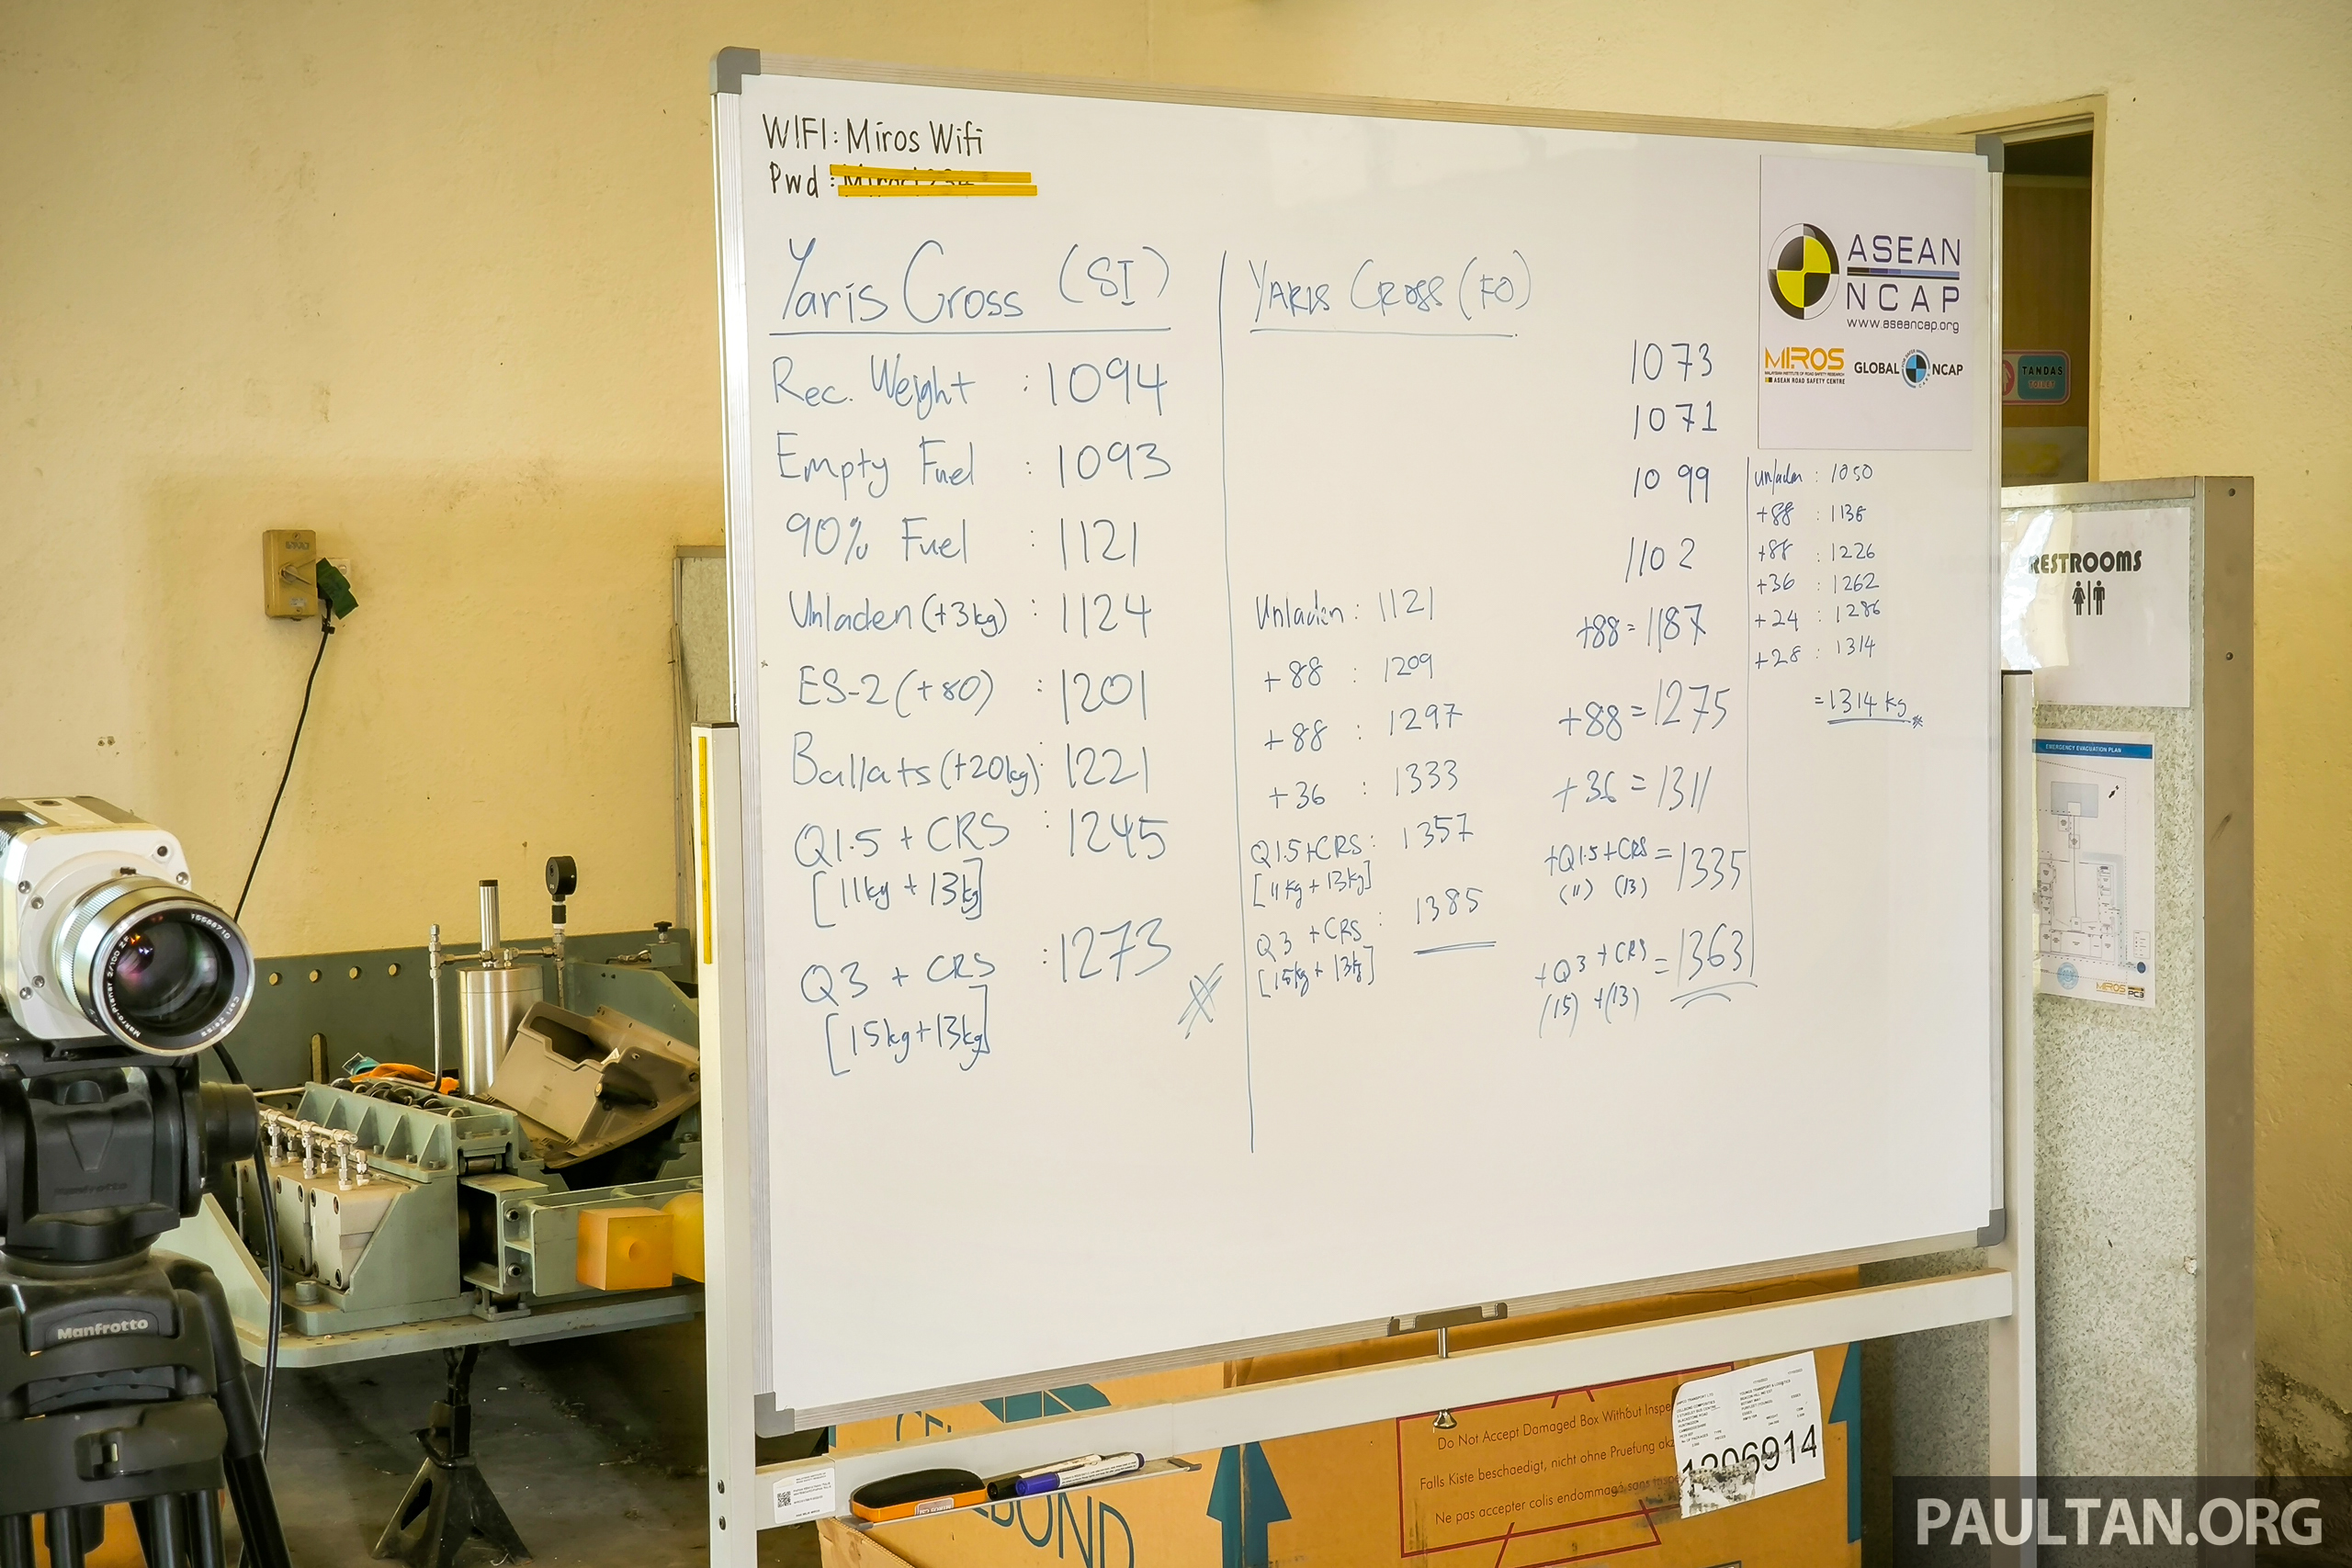 WIFI: Miros Wifi
Pwd :
Yaris Cross (SI)
Rec. Weight : 1094
Empty Fuel : 1093
90% Fuel : 1121
Unladen (+3kg) : 1124
ES-2 (+80) : 1201
Ballats (+20kg) : 1221
Q1.5 + CRS : 1245
[11kg + 13kg]
Q3 + CRS : 1273
[15kg + 13kg]
YARIS CROSS (FO)
Unladen : 1121
+88 : 1209
+88 : 1297
+36 : 1333
Q1.5+CRS : 1357
[11kg + 13kg]
Q3 + CRS : 1385
[15kg + 13kg]
1073
1071
1099
1102
+88 = 1187
+88 = 1275
+36 = 1311
+Q1.5+CRS = 1335
(11) (13)
+Q3 +CRS = 1363
(15) +(13)
ASEAN
NCAP
www.aseancap.org
MIROS
ASEAN ROAD SAFETY CENTRE
GLOBAL NCAP
Unladen : 1050
+88 : 1138
+88 : 1226
+36 : 1262
+24 : 1286
+28 : 1314
= 1314 kg
TANDAS
TOILET
RESTROOMS
EMERGENCY EVACUATION PLAN
MIROS
PC3
15588710
Makro-Planar 2/100
Carl Zeiss
Manfrotto
Manfrotto
Do Not Accept Damaged Box Without Inspe
Falls Kiste beschaedigt, nicht ohne Pruefung
Ne pas accepter colis endommagé sans
1206914
BOND
PAULTAN.ORG